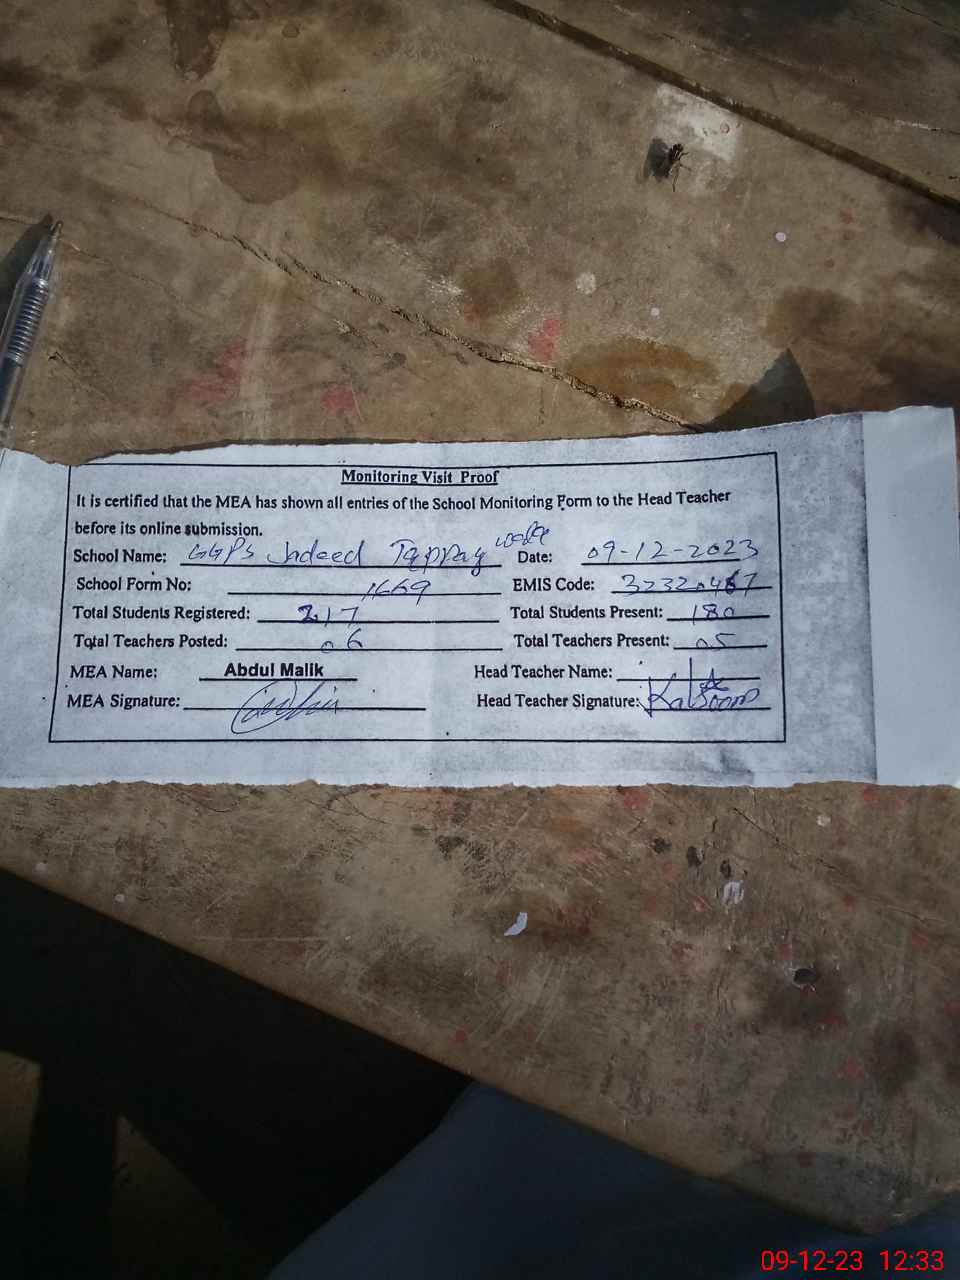 Monitoring Visit Proof
It is certified that the MEA has shown all entries of the School Monitoring Form to the Head Teacher
before its online submission.
School Name: GGPS Jadeed Tappay wala Date: 09-12-2023
School Form No: 1669 EMIS Code:
Total Students Registered: 217 Total Students Present: 180
Total Teachers Posted: 06 Total Teachers Present: 05
MEA Name: Abdul Malik Head Teacher Name:
MEA Signature: Head Teacher Signature: Kalsoom
09-12-23 12:33